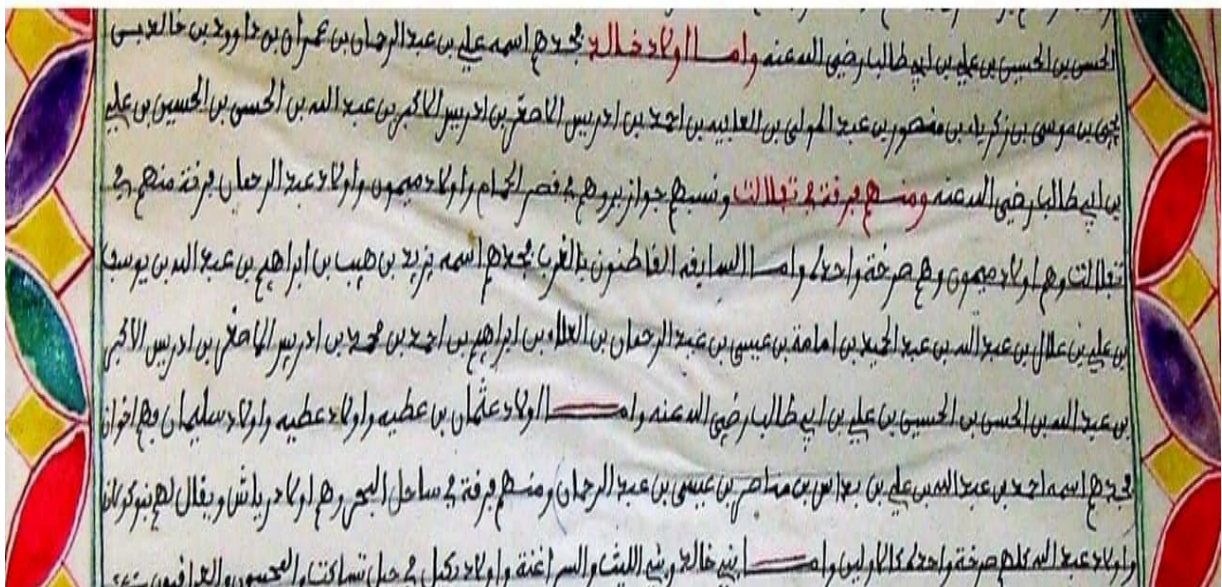 الحسن بن الحسين بن علي بن ابي طالب رضي الله عنه واما اولاد خالد فجدهم اسمه علي بن عبد الرحمان بن عمران بن داوود بن خالد بن
يحي بن موسى بن زكرياء بن منصور بن عبد المولى بن العابيه بن احمد بن ادريس الاصغر بن ادريس الاكبر بن عبد الله بن الحسن بن الحسين بن علي
بن ابي طالب رضي الله عنه ومنهم فرقة في تعلالت ونسبهم جوازيرو هم في قصر الحمام واولاد ميمون واولاد عبد الرحمان فرقة منهم في
تعلالت وهم اولاد ميمون وهم صرخة واحدة واما السايفه القاطنون بالغرب فجدهم اسمه يزيد بن هيب بن ابراهيم بن عبد الله بن يوسف
بن علي بن علال بن عبد الله بن عبد الحميد بن امامة بن عيسى بن عبد الرحمان بن العلاء بن ابراهيم بن احمد بن محمد بن ادريس الاصغر بن ادريس الاكبر
بن عبد الله بن الحسن بن الحسين بن علي بن ابي طالب رضي الله عنه واما اولاد عثمان بن عطيه واولاد عطيه واولاد سليمان فهم اخوان
فجدهم اسمه احمد بن عبد الله بن علي بن بن مناصر بن عيسى بن عبد الرحمان ومنهم فرقة في ساحل البحر وهم اولاد رياش ويقال لهم
واولاد عبد الله كلهم صرخة واحدة كالاولين واما بني خالد وبني الليث والسراغنة واولاد ركيل في جبل